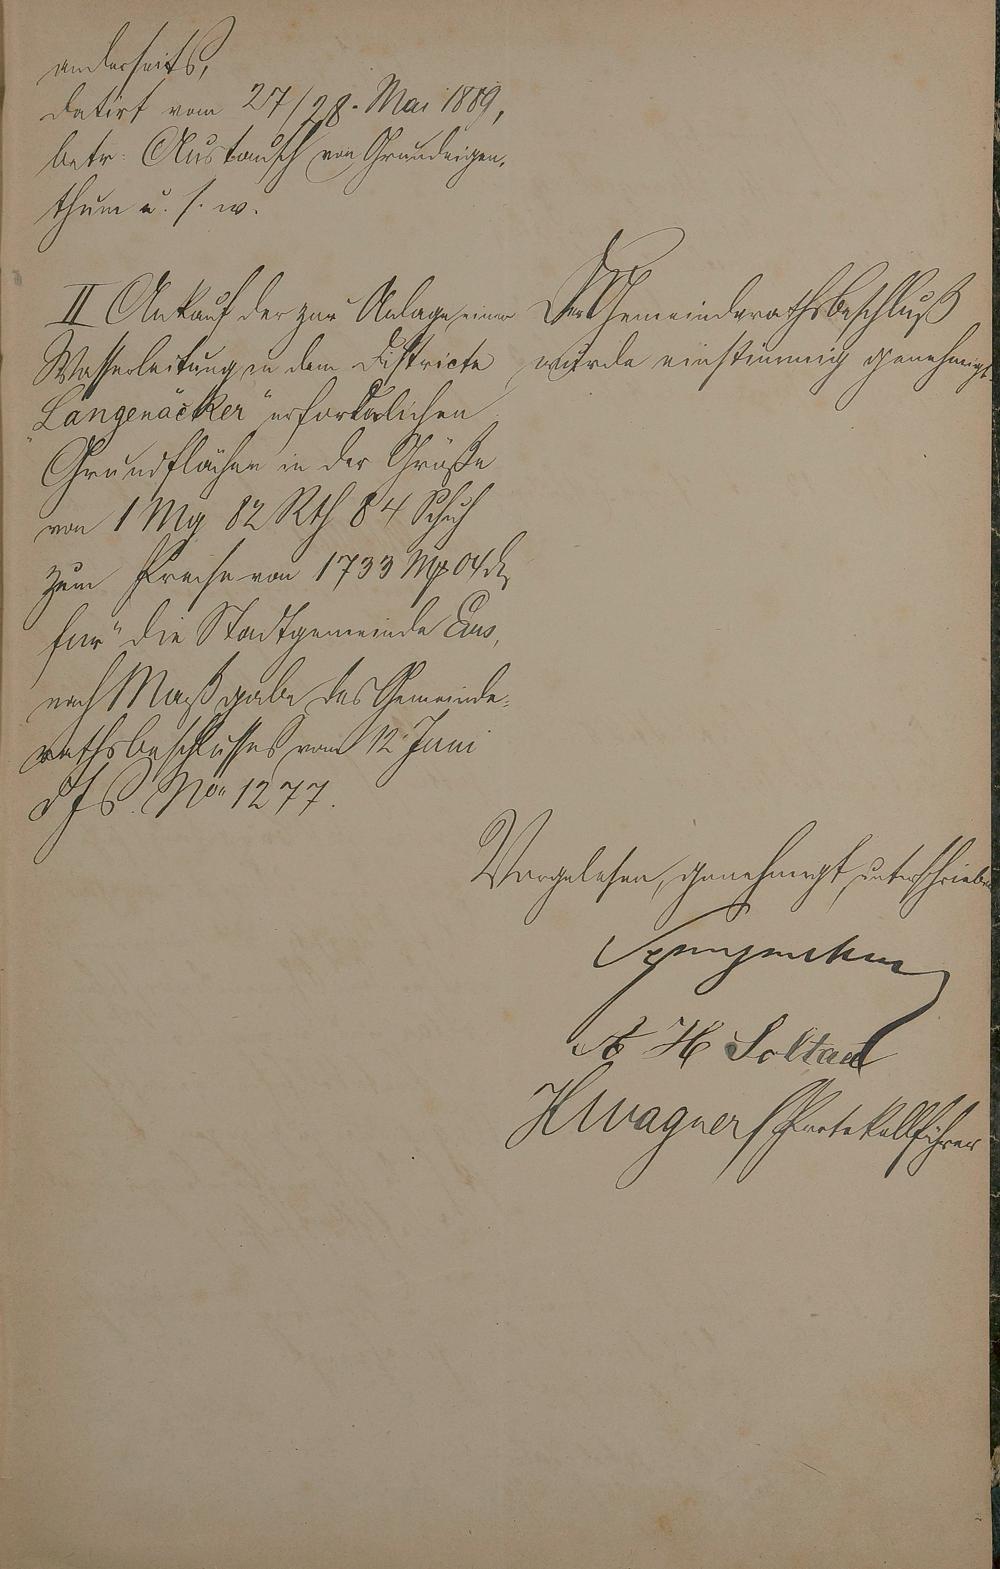 anderseits,
datirt vom 27/28. Mai 1889,
betr: Austausch von Grundeigen-
thum u. s. w.
II Ankauf der zur Anlage einer
Wasserleitung in dem Districte
"Langenäcker" erforderlichen
Grundflächen in der Größe
von 1 Mg 82 Rth 84 Schuh
zum Preise von 1733 M 04 d
für die Stadtgemeinde Ems,
nach Maßgabe des Gemeinde-
rathsbeschlusses vom 12 Juni
d Js. No. 1277.
Der Gemeinderathsbeschluß
wurde einstimmig genehmigt.
Vorgelesen, genehmigt, unterschrieben
A H Soltau
H Wagner Protokollführer